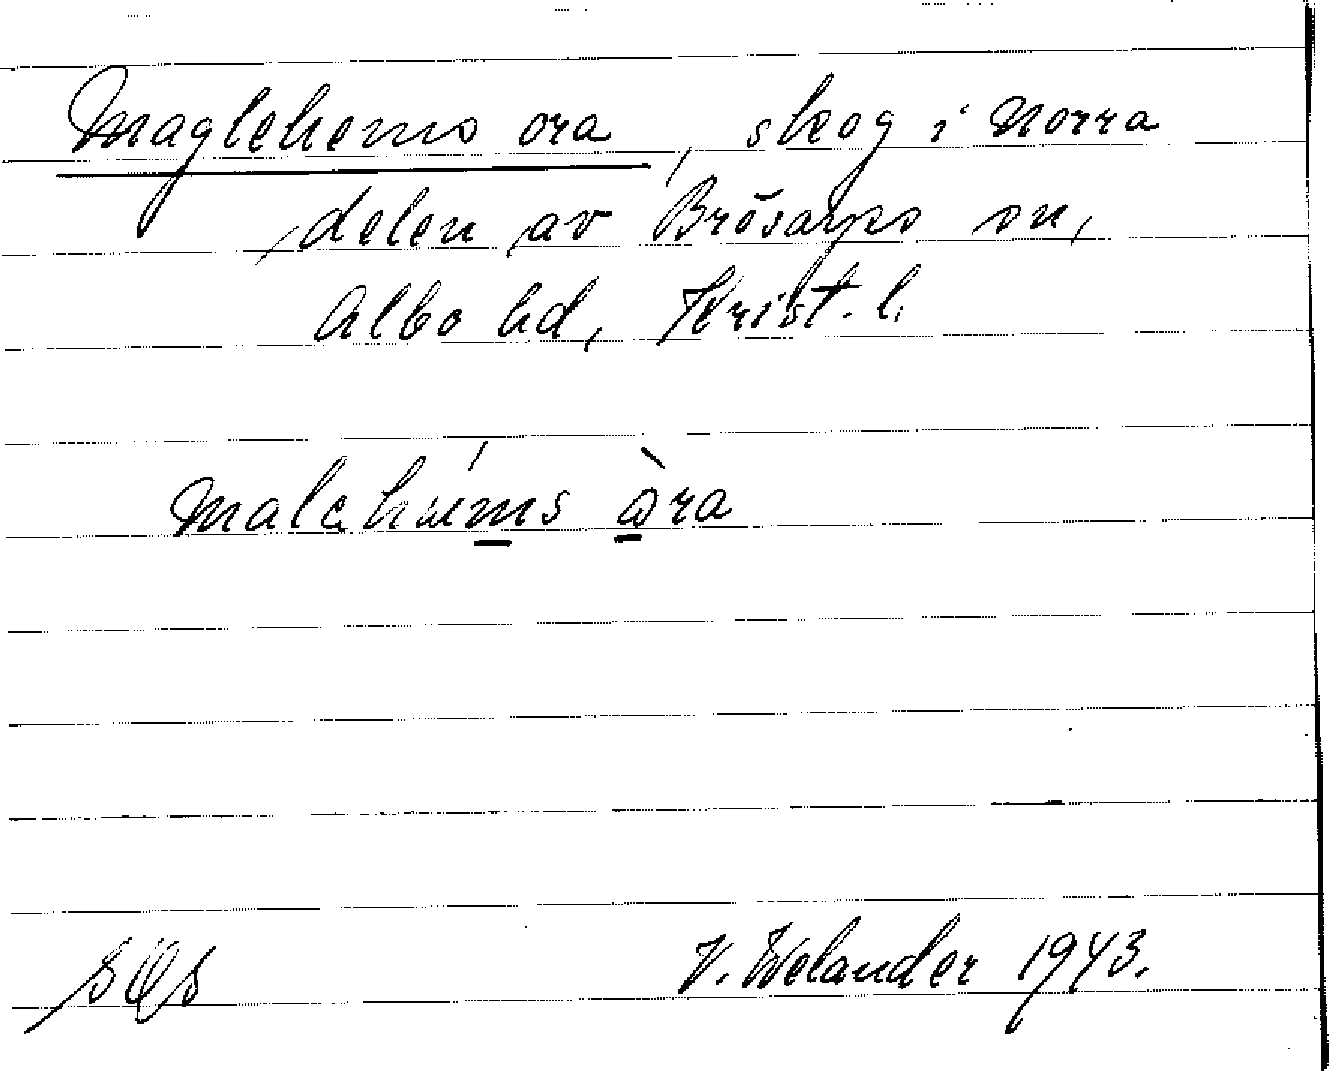 Maglehems ora, skog i norra
delen av Brösarps sn,
Albo hd, Krist. l.
V. Welander 1943.